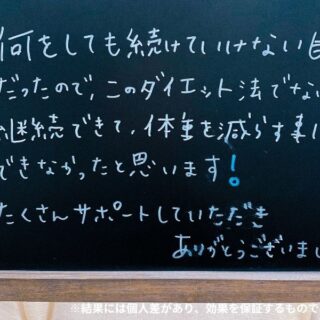 何をしても続けていけない自
だったので、このダイエット法でない
継続できて、体重を減らす事に
できなかったと思います!
たくさんサポートしていただき
ありがとうございまし
※結果には個人差があり、効果を保証するもので